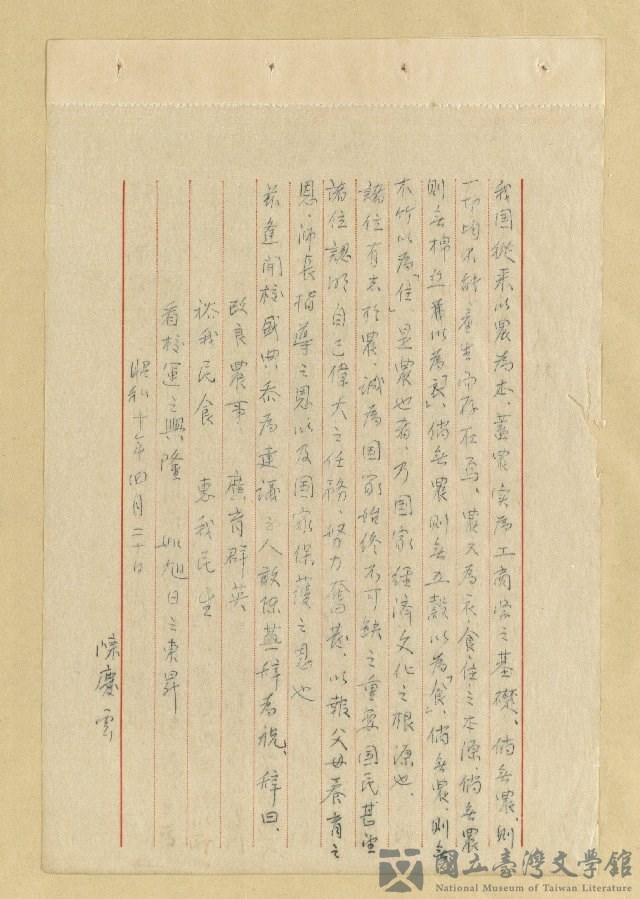 我国從来以農為本、蓋農实為工商学之基礎、倘無農、則
一切均不能產生而存在焉、農又為衣食住之本源、倘無農
則無棉丝以為「衣」、倘無農則無五穀以為「食」、倘無農、則無
木竹以為「住」、是農也者、乃国家経済文化之根源也、
諸位有志於農、誠為国家始終不可缺之重要国民甚望
諸位認明自己偉大之任務、努力奮発、以報父母養育之
恩、師長指導之恩以及国家保護之恩也
茲逢開校盛典忝為建議之人敢陳蕪辞為祝、辞曰、
改良農事 應育群英
裕我民食 惠我民生
看校運之興隆 如旭日之東昇
昭和十年四月二十日
陳慶雲
國立臺灣文學館
National Museum of Taiwan Literature